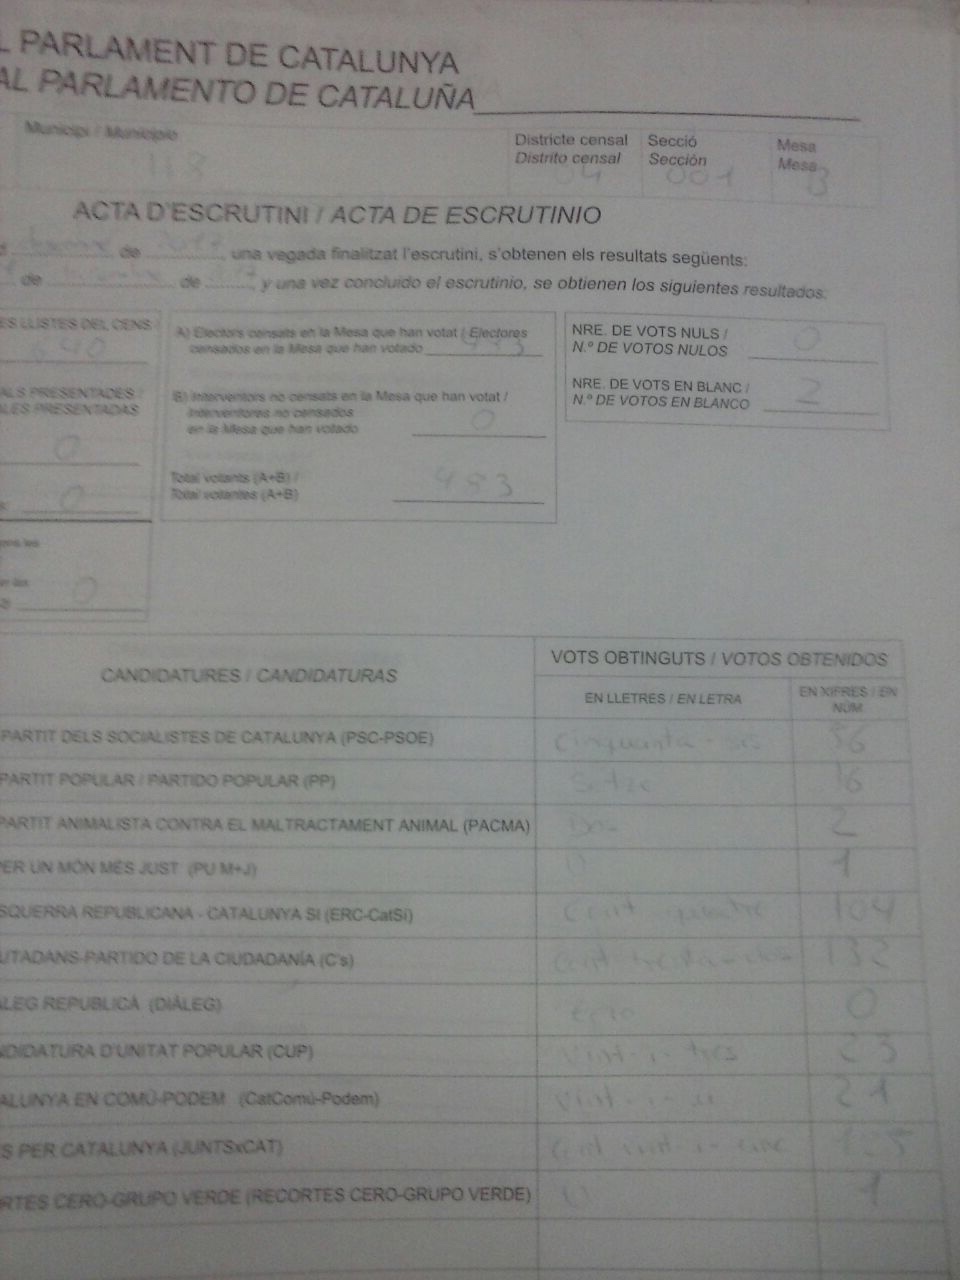 L PARLAMENT DE CATALUNYA
AL PARLAMENTO DE CATALUÑA
Municipi / Municipio
118
Districte censal
Distrito censal
04
Secció
Sección
001
Mesa
Mesa
B
ACTA D'ESCRUTINI / ACTA DE ESCRUTINIO
de 2017, una vegada finalitzat l'escrutini, s'obtenen els resultats següents:
de de y una vez concluido el escrutinio, se obtienen los siguientes resultados:
ES LLISTES DEL CENS /
640
ALS PRESENTADES /
LES PRESENTADAS
0
0
0
A) Electors censats en la Mesa que han votat / Electores
censados en la Mesa que han votado
B) Interventors no censats en la Mesa que han votat /
Interventores no censados
en la Mesa que han votado 0
Total votants (A+B) /
Total votantes (A+B) 483
NRE. DE VOTS NULS /
N.º DE VOTOS NULOS 0
NRE. DE VOTS EN BLANC /
N.º DE VOTOS EN BLANCO 2
CANDIDATURES / CANDIDATURAS
VOTS OBTINGUTS / VOTOS OBTENIDOS
EN LLETRES / EN LETRA
EN XIFRES / EN
NÚM.
PARTIT DELS SOCIALISTES DE CATALUNYA (PSC-PSOE) cinquanta-sis 56
PARTIT POPULAR / PARTIDO POPULAR (PP) Setze 16
PARTIT ANIMALISTA CONTRA EL MALTRACTAMENT ANIMAL (PACMA) Dos 2
PER UN MÓN MÉS JUST (PU M+J) U 1
SQUERRA REPUBLICANA - CATALUNYA SÍ (ERC-CatSí) Cent quatre 104
UTADANS-PARTIDO DE LA CIUDADANÍA (C's) Cent trenta-dos 132
ÀLEG REPUBLICÀ (DIÀLEG) Zero 0
NDIDATURA D'UNITAT POPULAR (CUP) Vint-i-tres 23
ALUNYA EN COMÚ-PODEM (CatComú-Podem) Vint-i-u 21
S PER CATALUNYA (JUNTSxCAT) Cent vint-i-cinc 125
RTES CERO-GRUPO VERDE (RECORTES CERO-GRUPO VERDE) U 1